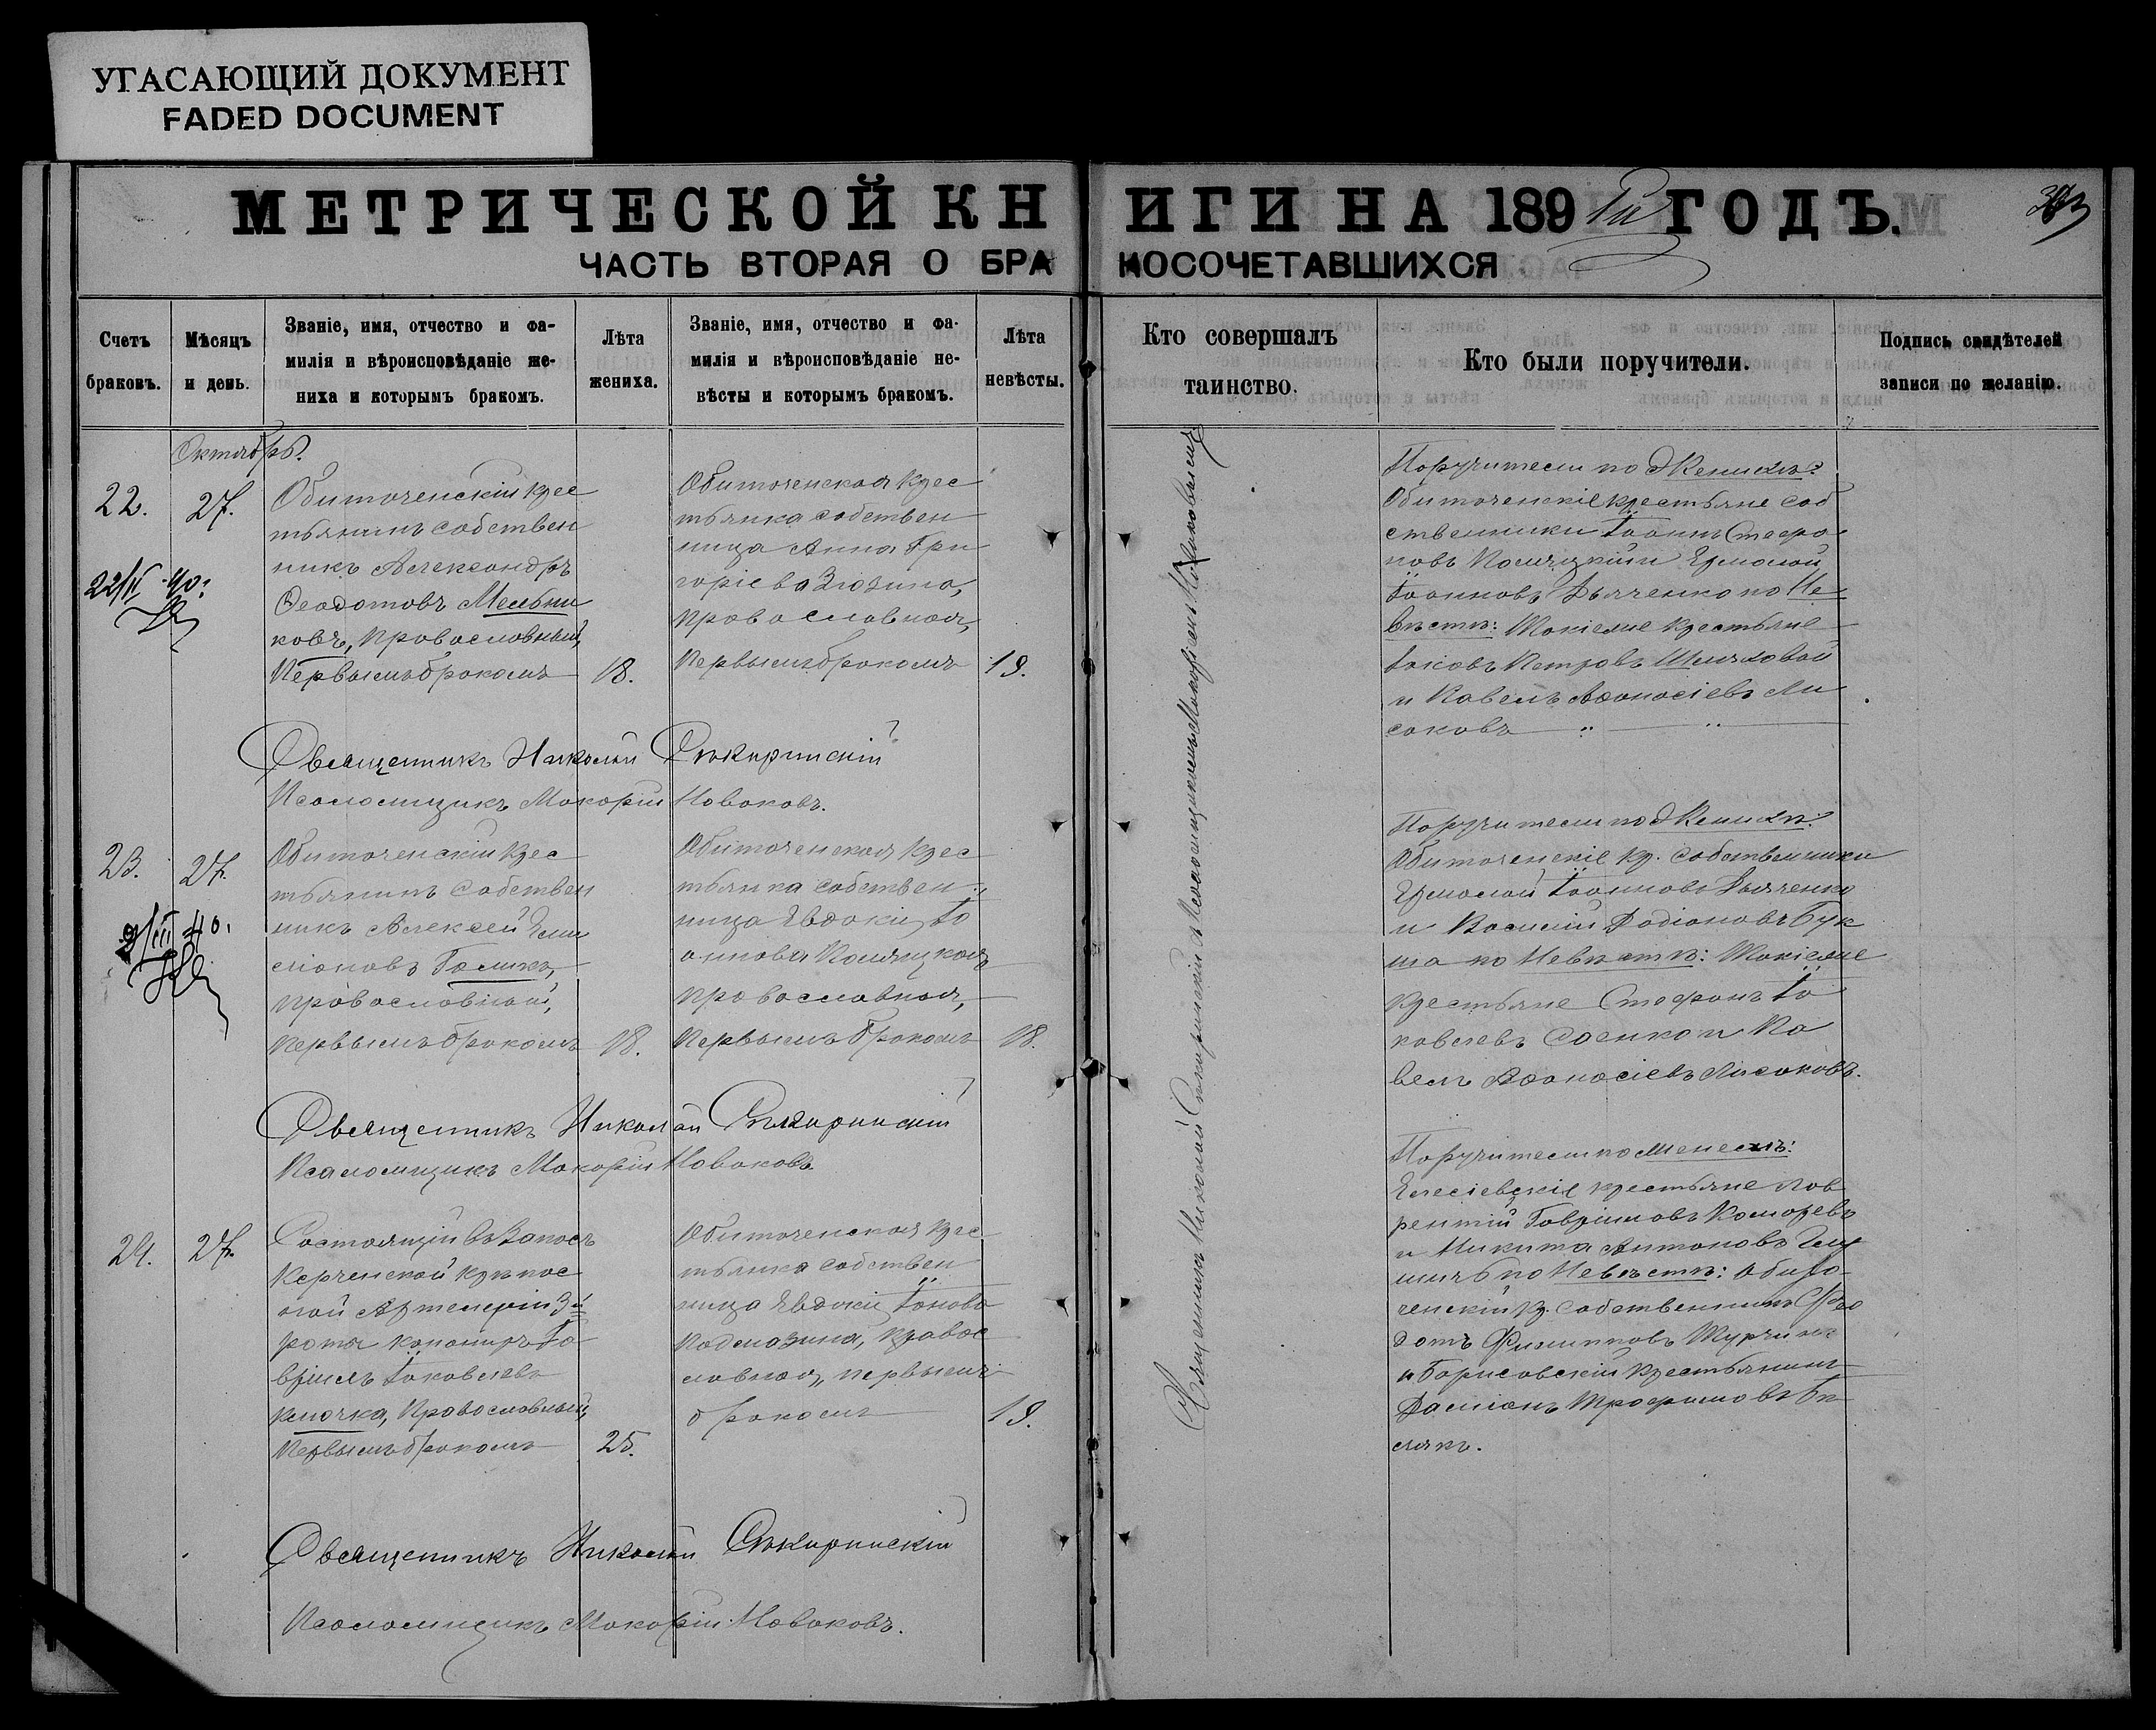 УГАСАЮЩИЙ ДОКУМЕНТ
FADED DOCUMENT
МЕТРИЧЕСКОЙ КНИГИ НА 189 ГОДЪ.
ЧАСТЬ ВТОРАЯ О БРАКОСОЧЕТАВШИХСЯ
Счетъ браковъ.
Мѣсяцъ и день.
Званіе, имя, отчество и фа-
милія и вѣроисповѣданіе же-
ниха и которымъ бракомъ.
Лѣта жениха.
Званіе, имя, отчество и фа-
милія и вѣроисповѣданіе не-
вѣсты и которымъ бракомъ.
Лѣта невѣсты.
Кто совершалъ
таинство.
Кто были поручители.
Подпись свидѣтелей
записи по желанію.
Октябрь.
22.
27.
Обиточенскій крес
тьянинъ собствен
никъ Александръ
Ѳеодотовъ Мельни
ковъ, православный,
Первымъ бракомъ
18.
Обиточенская крес
тьянка собствен
ница Анна Гри
горіева
православная,
первымъ бракомъ
19.
Священникъ Николай Псаломщикъ Макарій Новаковъ
Поручители по Женихѣ:
Обиточенскіе крестьяне соб
ственники Іоаннъ Стефа
новъ Коляцкій и Ермолай
Іоанновъ Дьяченко по Не
вѣстѣ: Такіеже крестьяне
Іаковъ Петровъ
и Павелъ Аѳанасіевъ Ли
саковъ
Священникъ Николай
Псаломщикъ Макарій Новаковъ.
23.
27.
Обиточенскій крес
тьянинъ собствен
никъ Алексей Еми
ліановъ Галикъ,
православный,
первымъ бракомъ
18.
Обиточенская крес
тьянка собствен
ница Евдокія Іо
аннова Коляцкая,
православная,
первымъ бракомъ
18.
Поручители по Женихѣ:
Обиточенскіе кр. собственники
Ермолай Іоанновъ Дьяченко
и Василій Родіоновъ Бук
ша по Невѣстѣ: Такіеже
крестьяне Стефанъ Іа
ковлевъ Саенко и Па
велъ Аѳанасіевъ Лисаковъ.
Священникъ Николай
Псаломщикъ Макарій Новаковъ.
24.
27.
Состоящій въ Запасѣ
Керченской крѣпос
ной Артилеріи 3й
роты канониръ Га
вріилъ Іаковлевъ
Клочка, Православный,
Первымъ бракомъ
25.
Обиточенская крес
тьянка собствен
ница Евдокія Іонова
Подмазина, правос
лавная, первымъ
бракомъ
19.
Поручители по Женихѣ:
Елисіевскіе крестьяне Лав
рентій Гавріиловъ Комаревъ
и Никита Антоновъ
по Невѣстѣ: Обито-
ченскій кр. собственникъ Фео
дотъ Филиповъ
и Борисовскій крестьянинъ
Даміанъ Трофимовъ Бѣ
лякъ.
Священникъ Николай
Псаломщикъ Макарій Новаковъ.